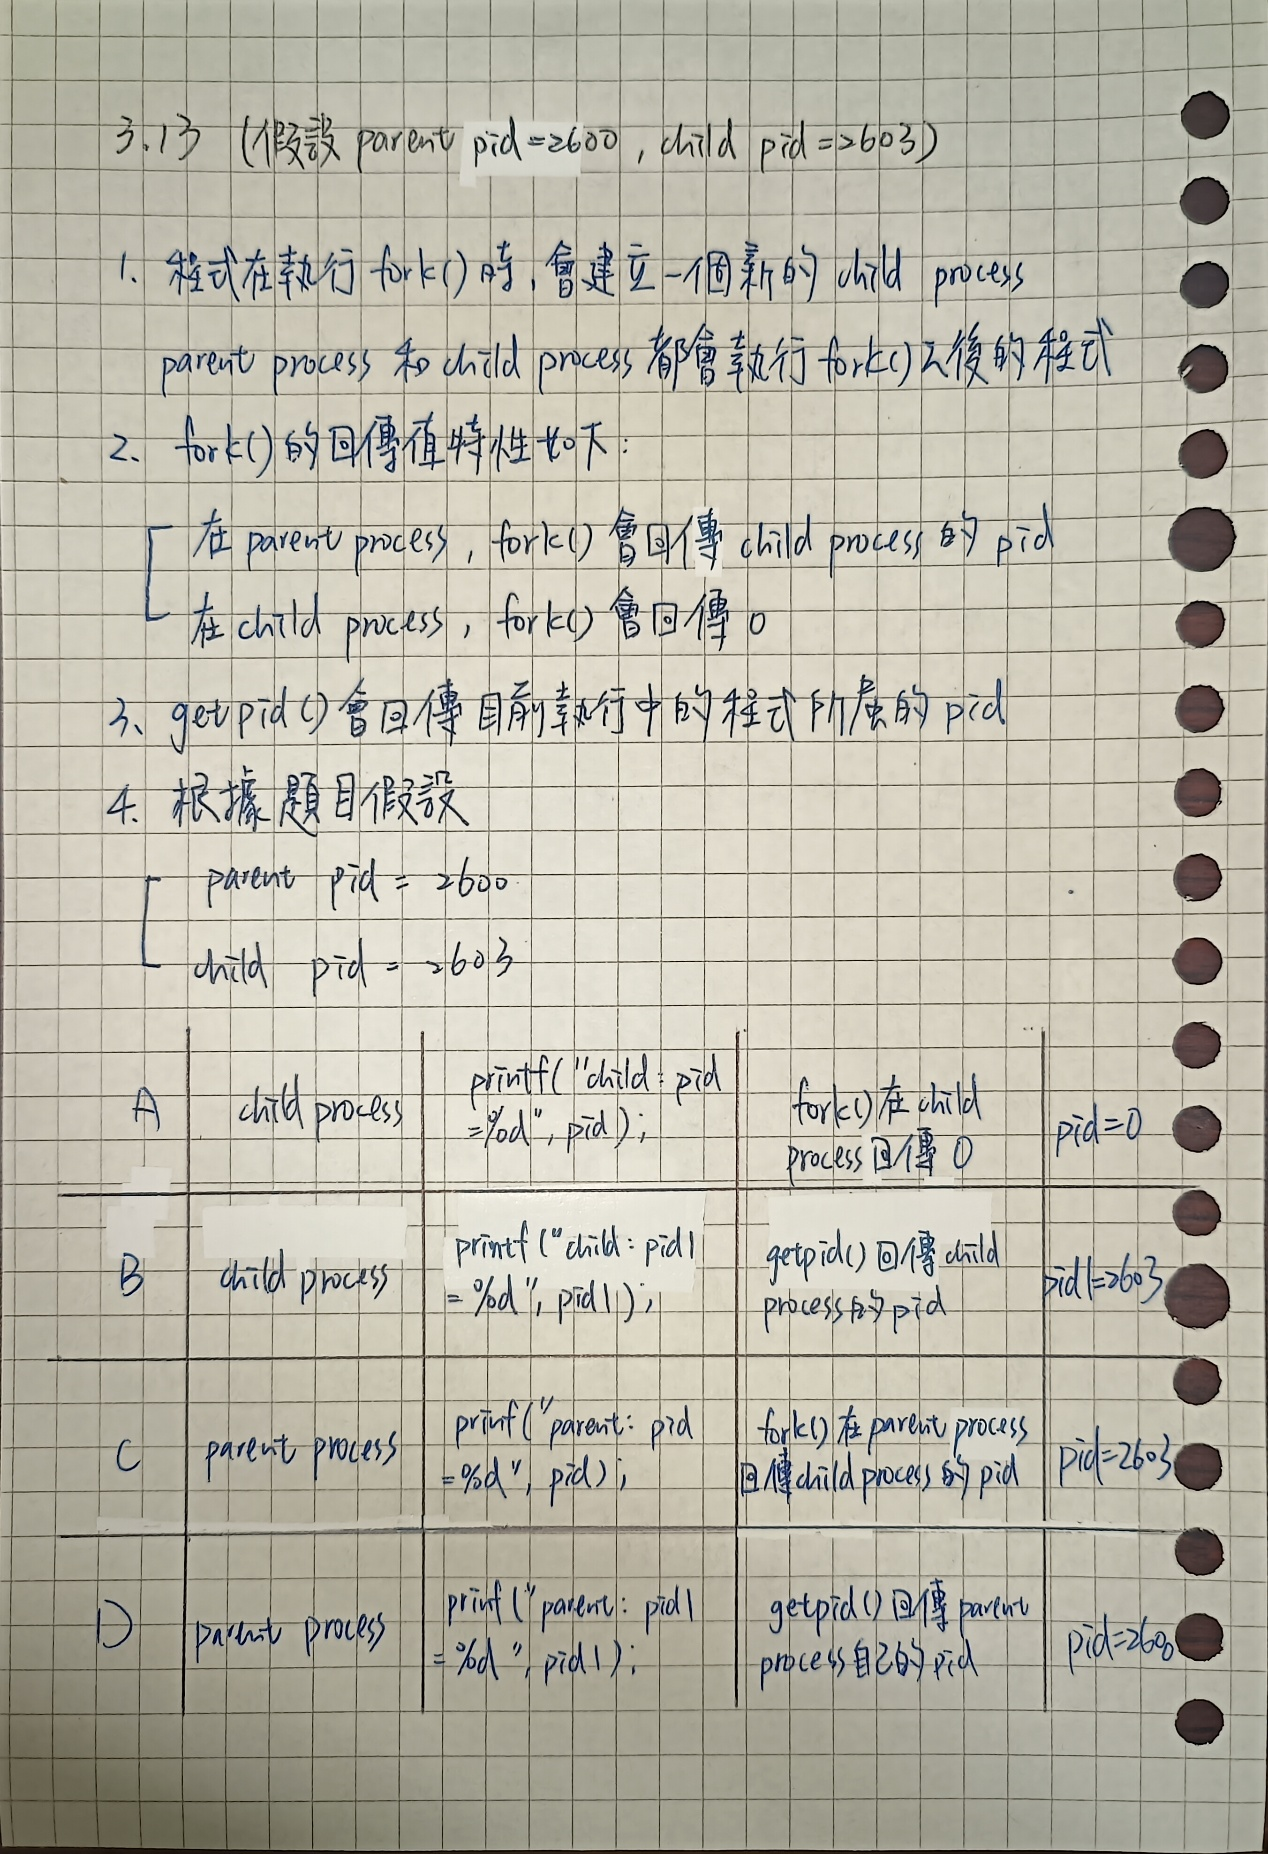 3.13 (假設 parent pid=2600, child pid=2603)
1. 程式在執行 fork() 時, 會建立一個新的 child process
parent process 和 child process 都會執行 fork() 之後的程式
2、 fork() 的回傳值特性如下:
在 parent process, fork() 會回傳 child process 的 pid
在 child process, fork() 會回傳 0
3、 getpid() 會回傳目前執行中的程式所屬的 pid
4. 根據題目假設
parent pid = 2600
child pid = 2603
A child process printf("child: pid =%d", pid); fork() 在 child process 回傳 0 pid=0
B child process printf ("child: pid1 = %d", pid1); getpid() 回傳 child process 的 pid pid1=2603
C parent process prinf("parent: pid =%d", pid); fork() 在 parent process 回傳 child process 的 pid pid=2603
D parent process prinf ("parent: pid1 = %d", pid1); getpid() 回傳 parent process 自己的 pid pid=2600